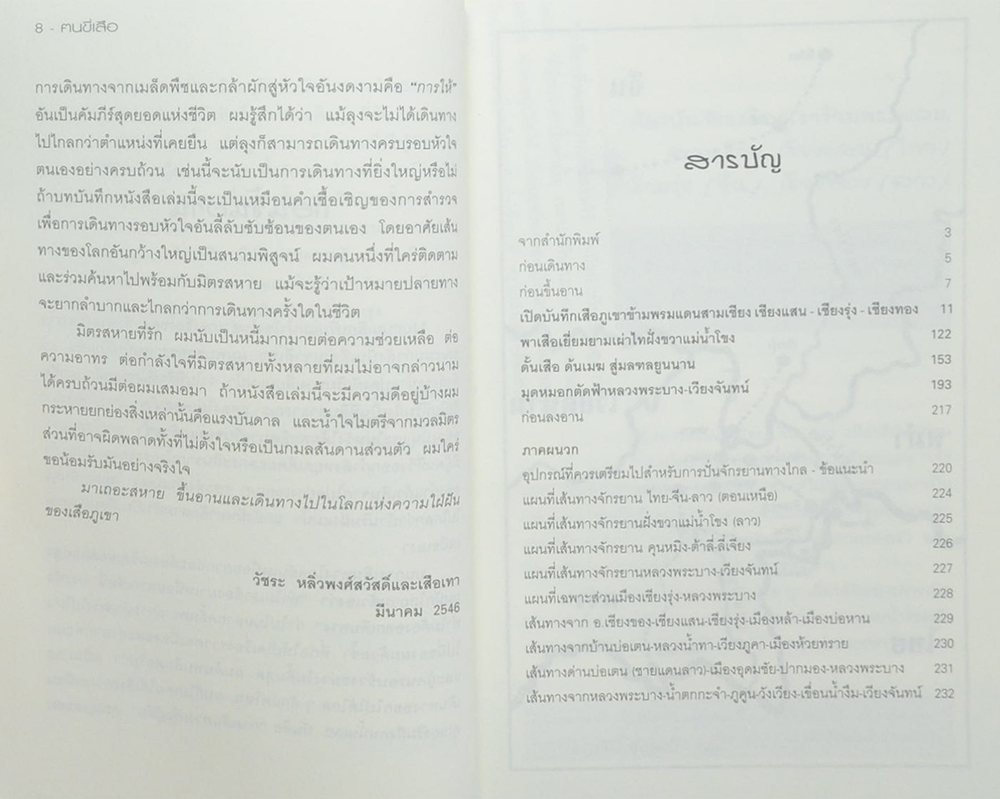 8 - ฅนขี่เสือ
การเดินทางจากเมล็ดพืชและกล้าผักสู่หัวใจอันงดงามคือ "การให้"
อันเป็นคัมภีร์สุดยอดแห่งชีวิต ผมรู้สึกได้ว่า แม้ลุงจะไม่ได้เดินทาง
ไปไกลกว่าตำแหน่งที่เคยยืน แต่ลุงก็สามารถเดินทางครบรอบหัวใจ
ตนเองอย่างครบถ้วน เช่นนี้จะนับเป็นการเดินทางที่ยิ่งใหญ่หรือไม่
ถ้าบทบันทึกหนังสือเล่มนี้จะเป็นเหมือนคำเชื้อเชิญของการสำรวจ
เพื่อการเดินทางรอบหัวใจอันลี้ลับซับซ้อนของตนเอง โดยอาศัยเส้น
ทางของโลกอันกว้างใหญ่เป็นสนามพิสูจน์ ผมคนหนึ่งที่ใคร่ติดตาม
และร่วมค้นหาไปพร้อมกับมิตรสหาย แม้จะรู้ว่าเป้าหมายปลายทาง
จะยากลำบากและไกลกว่าการเดินทางครั้งใดในชีวิต
มิตรสหายที่รัก ผมนับเป็นหนี้มากมายต่อความช่วยเหลือ ต่อ
ความอาทร ต่อกำลังใจที่มิตรสหายทั้งหลายที่ผมไม่อาจกล่าวนาม
ได้ครบถ้วนมีต่อผมเสมอมา ถ้าหนังสือเล่มนี้จะมีความดีอยู่บ้างผม
กระหายยกย่องสิ่งเหล่านั้นคือแรงบันดาล และน้ำใจไมตรีจากมวลมิตร
ส่วนที่อาจผิดพลาดทั้งที่ไม่ตั้งใจหรือเป็นกมลสันดานส่วนตัว ผมใคร่
ขอน้อมรับมันอย่างจริงใจ
มาเถอะสหาย ขึ้นอานและเดินทางไปในโลกแห่งความใฝ่ฝัน
ของเสือภูเขา
วัชระ หลิ่วพงศ์สวัสดิ์และเสือเทา
มีนาคม 2546
สารบัญ
จากสำนักพิมพ์ 3
ก่อนเดินทาง 5
ก่อนขึ้นอาน 7
เปิดบันทึกเสือภูเขาข้ามพรมแดนสามเชียง เชียงแสน - เชียงรุ่ง - เชียงทอง 11
พาเสือเยี่ยมยามเผ่าไทฝั่งขวาแม่น้ำโขง 122
ดั้นเสือ ด้นเมฆ สู่มลฑลยูนนาน 153
มุดหมอกตัดฟ้าหลวงพระบาง-เวียงจันทน์ 193
ก่อนลงอาน 217
ภาคผนวก
อุปกรณ์ที่ควรเตรียมไปสำหรับการปั่นจักรยานทางไกล - ข้อแนะนำ 220
แผนที่เส้นทางจักรยาน ไทย-จีน-ลาว (ตอนเหนือ) 224
แผนที่เส้นทางจักรยานฝั่งขวาแม่น้ำโขง (ลาว) 225
แผนที่เส้นทางจักรยาน คุนหมิง-ต้าลี่-ลี่เจียง 226
แผนที่เส้นทางจักรยานหลวงพระบาง-เวียงจันทน์ 227
แผนที่เฉพาะส่วนเมืองเชียงรุ่ง-หลวงพระบาง 228
เส้นทางจาก อ.เชียงของ-เชียงแสน-เชียงรุ่ง-เมืองหล้า-เมืองบ่อหาน 229
เส้นทางจากบ้านบ่อเตน-หลวงน้ำทา-เวียงภูคา-เมืองห้วยทราย 230
เส้นทางด่านบ่อเตน (ชายแดนลาว)-เมืองอุดมชัย-ปากมอง-หลวงพระบาง 231
เส้นทางจากหลวงพระบาง-น้ำตกกะจำ-ภูคูน-วังเวียง-เขื่อนน้ำงึม-เวียงจันทน์ 232